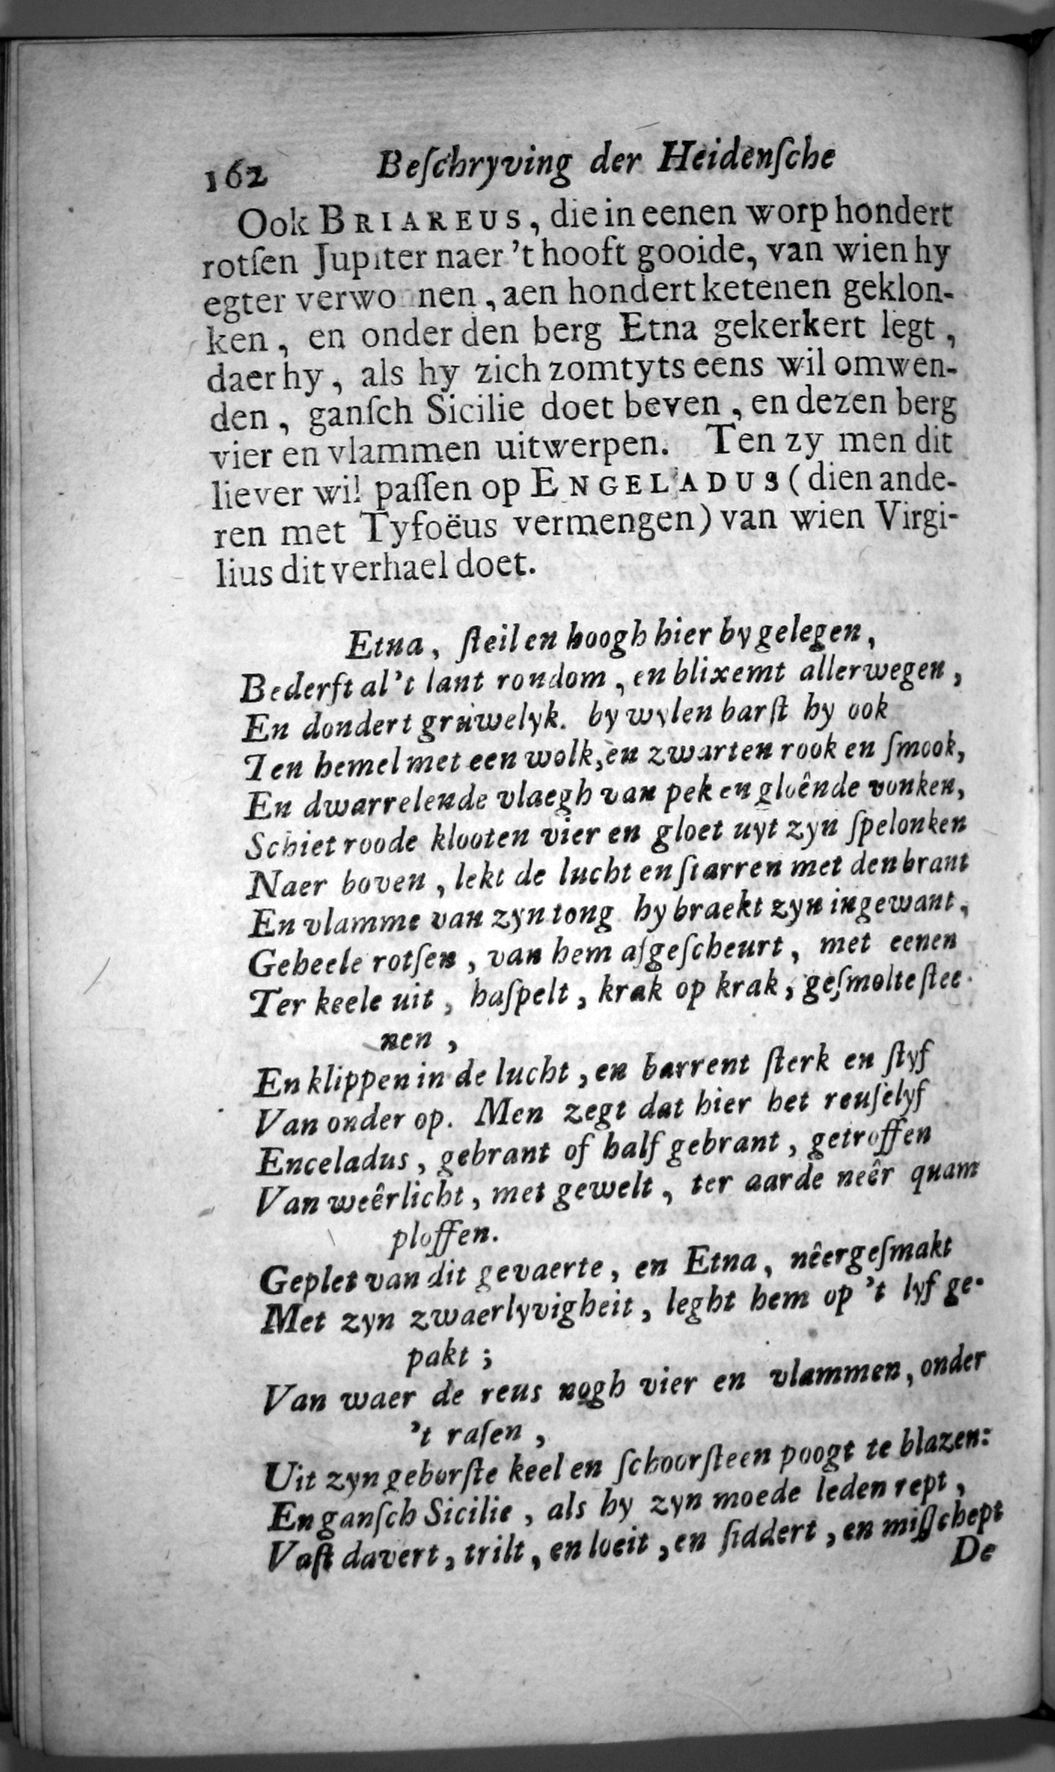 162 Beſchryving der Heidenſche
Ook BRIAREUS, die in eenen worp hondert
rotſen Jupiter naer 't hooft gooide, van wien hy
egter verwonnen, aen hondert ketenen geklon-
ken, en onder den berg Etna gekerkert legt,
daer hy, als hy zich zomtyts eens wil omwen-
den, ganſch Sicilie doet beven, en dezen berg
vier en vlammen uitwerpen. Ten zy men dit
liever wil paſſen op ENGELADUS (dien ande-
ren met Tyfoëus vermengen) van wien Virgi-
lius dit verhael doet.
Etna, ſteil en hoogh hier by gelegen,
Bederft al 't lant rondom, en blixemt allerwegen,
En dondert gruwelyk. by wylen barſt hy ook
Ten hemel met een wolk, en zwarten rook en ſmook,
En dwarrelende vlaegh van pek en gloênde vonken,
Schiet roode klooten vier en gloet uyt zyn ſpelonken
Naer boven, lekt de lucht en ſtarren met den brant
En vlamme van zyn tong hy braekt zyn ingewant,
Geheele rotſen, van hem afgeſcheurt, met eenen
Ter keele uit, haſpelt, krak op krak, geſmolte ſtee-
nen,
En klippen in de lucht, en barrent ſterk en ſtyf
Van onder op. Men zegt dat hier het reuſelyf
Enceladus, gebrant of half gebrant, getroffen
Van weêrlicht, met gewelt, ter aarde neêr quam
ploffen.
Geplet van dit gevaerte, en Etna, nêergeſmakt
Met zyn zwaerlyvigheit, leght hem op 't lyf ge-
pakt;
Van waer de reus nogh vier en vlammen, onder
't raſen,
Uit zyn geborſte keel en ſchoorſteen poogt te blazen:
En ganſch Sicilie, als hy zyn moede leden rept,
Vaſt davert, trilt, en loeit, en ſiddert, en miſſchept
De